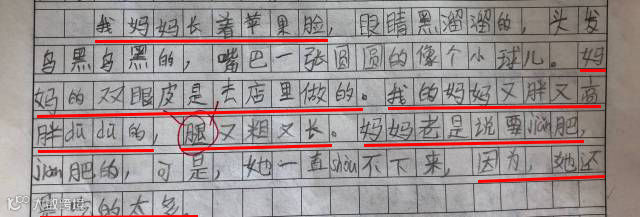 我妈妈长着苹果脸，眼睛黑溜溜的，头发
乌黑乌黑的，嘴巴一张圆圆的像个小球儿。妈
妈的双眼皮是去店里做的。我的妈妈又胖又高
胖dūdū的，腿又粗又长。妈妈老是说要jiǎn肥，
jiǎn肥的，可是，她一直shòu不下来，因为，她还
的太多。